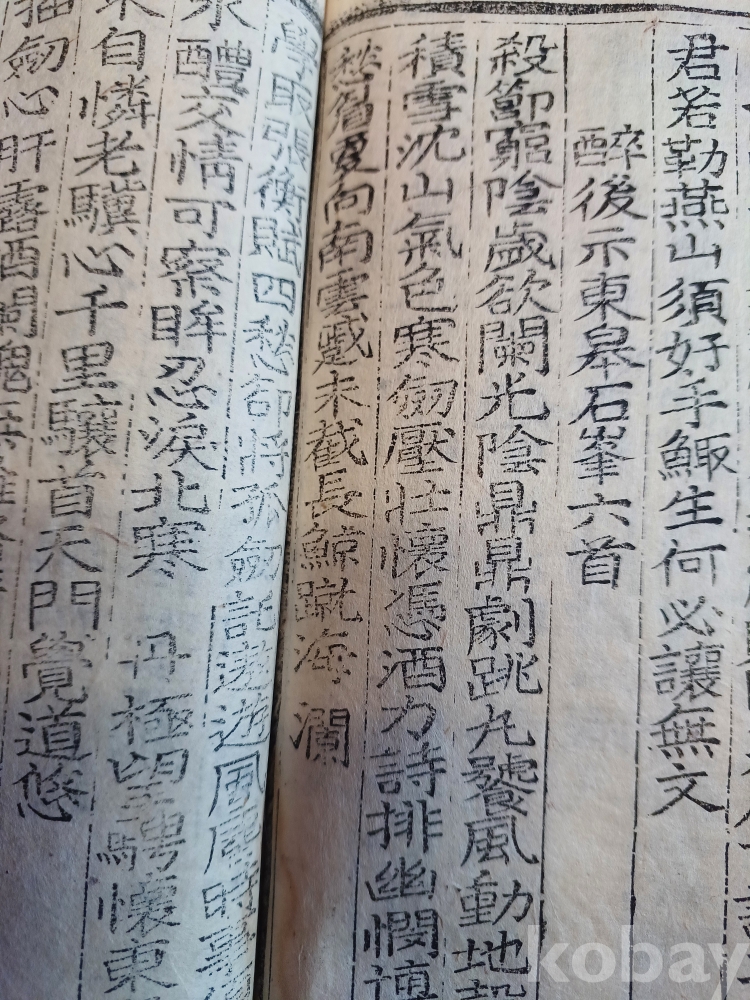 君若勒燕山須好手鯫生何必讓無文
醉後示東皋石峯六首
殺節窮陰歲欲闌光陰鼎鼎劇跳丸饕風動地
積雪沈山氣色寒劒壓壯懷憑酒力詩排幽憫
愁眉更向南雲蹙未截長鯨蹴海瀾
學取張衡賦四愁却將孤劒託遨遊風
醴交情可察眸忍淚北寒 丹極望騁懷東
自憐老驥心千里驤首天門覺道悠
劒心肝露酒
kobay